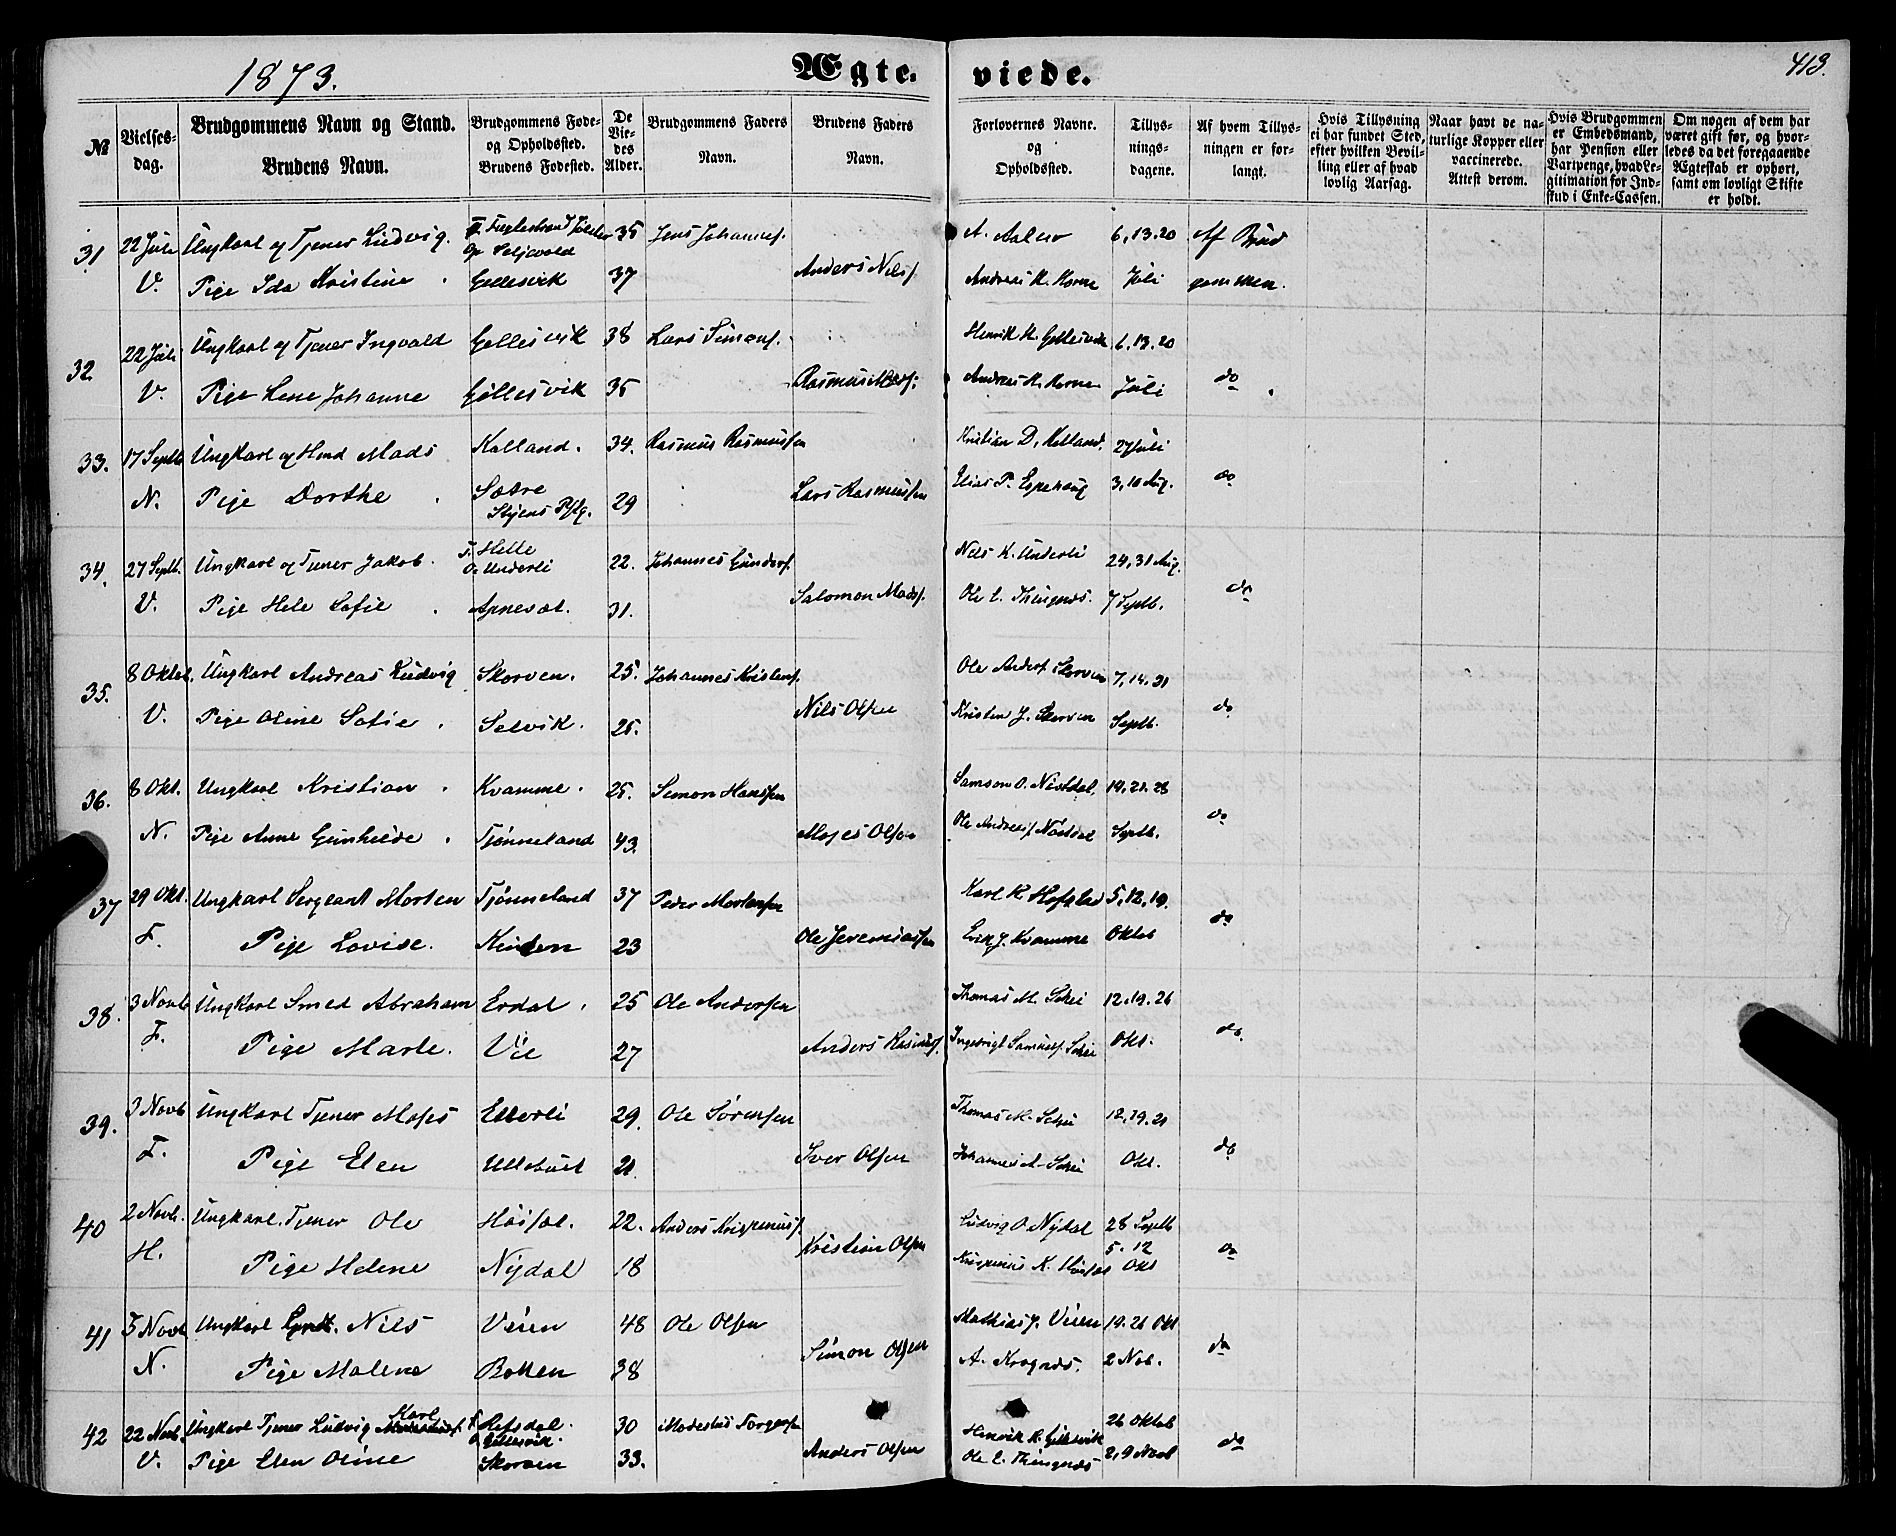 1873.
Ægte-
viede.
413.
№
Vielses-dag.
Brudgommens Navn og Stand.
Brudens Navn.
Brudgommens Føde- og Opholdssted.
Brudens Fødested.
De Viedes Alder.
Brudgommens Faders Navn.
Brudens Faders Navn.
Forlovernes Navne og Opholdssted.
Tillysningsdagene.
Af hvem Tillysningen er forlangt.
Hvis Tillysning ei har fundet Sted, efter hvilken Bevilling eller af hvad lovlig Aarsag.
Naar havt de naturlige Kopper eller vaccinerede. Attest derom.
Hvis Brudgommen er Embedsmand, har Pension eller Vartpenge, hvad Legitimation for Indskud i Enke-Cassen.
Om nogen af dem har været gift før, og hvorledes da det foregaaende Ægteskab er ophørt, samt om lovligt Skifte er holdt.
31 22 Juli Ungkarl og Tjener Ludvig. 35 Jens Johannes. A. Aaluo 6, 13. 20 Af Brud
V. Pige Ida Kristine Gellesvik 37 Anders Nilsf. Andreas K. Horne Juli gommen.
32. 22 Juli Ungkarl og Tjener Ingvald Gellesvik 38 Lars Simonsf. Henrik K. Gellesvik 6, 13. 20
V. Pige Lene Johanne Gellesvik 35 Rasmus Madsf. Andreas K. Horne Juli do
33. 17 Septb Ungkarl og Hmd Mads Kalland. 34. Rasmus Rasmussen Kristian D. Kalland. 27 Juli
N. Pige Dorthe Sætre 29 Lars Rasmussen Elias P. Espehaug 3, 10 Aug. do
34. 27 Septb. Ungkarl og Tjener Jakob. F. Helle O. Underli 22. Johannes Gundersf. Nils K. Underli 24, 31 Aug.
V. Pige Hele Sofie Apneset. 31. Salomon Madsf. Ole E. Thingnæs. 7 Septb. do
35. 8 Oktob. Ungkarl Andreas Ludvig Skorven. 25. Johannes Kristensf. Ole Andersf. Skorven 7, 14. 21
V. Pige Oline Sofie Selvik. 25. Nils Olsen Kristen J. Skorven Septb. do
36. 8 Okt. Ungkarl Kristian Kvamme. 25. Simon Hansen Samson O. Nistdal. 19, 21. 28
N. Pige Anne Gunhilde Tjønneland 43. Moses Olsen Ole Andersf. Nistdal Septb. do
37 29 Okt. Ungkarl Sergeant Morten Tjønneland 37 Peder Mortensen Karl K. Hofstad 5, 12, 19.
F. Pige Lovise. 23 Ole Jeremiassen Erik J. Kvamme Oktob do
38. 3 Novb Ungkarl Smed Abraham Erdal 25 Ole Andersen Thomas M. Schei 12. 19. 26
F. Pige Marte. Vie 27 Anders Rasmusf. Ingebrigt Samuelsf. Schei Okt. do.
39. 3 Novb Ungkarl Tjener Moses Ellerli 29. Ole Sørensen Thomas M. Schei 12, 19. 21
F. Pige Elen 21. Iver Olsen Johannes A. Schei Okt. do
40 2 Novb. Ungkarl. Tjener Ole Høiset. 22. Ludvig O. Nydal 28 Septb
H. Pige Helene Nydal 18 Kristian Olsen 5. 12 Okt do
41 5 Novb Ungkarl Nils Veien 48 Ole Olsen Mathias J. Veien 19. 26 Okt
N. Pige Malene Botten 38 Simon Olsen A. Krognæs. 2 Nob. do
42 22 Novb. Ungkarl Tjener Ludvig Karl F. Refsdal. O. Gillesvik. 30 Modestus Torgersen Henrik K. Gillesvik 26 Oktob
V. Pige Elen Oline Skorven 33. Anders Olsen Ole E. Thingnæs 2, 9 Novb do